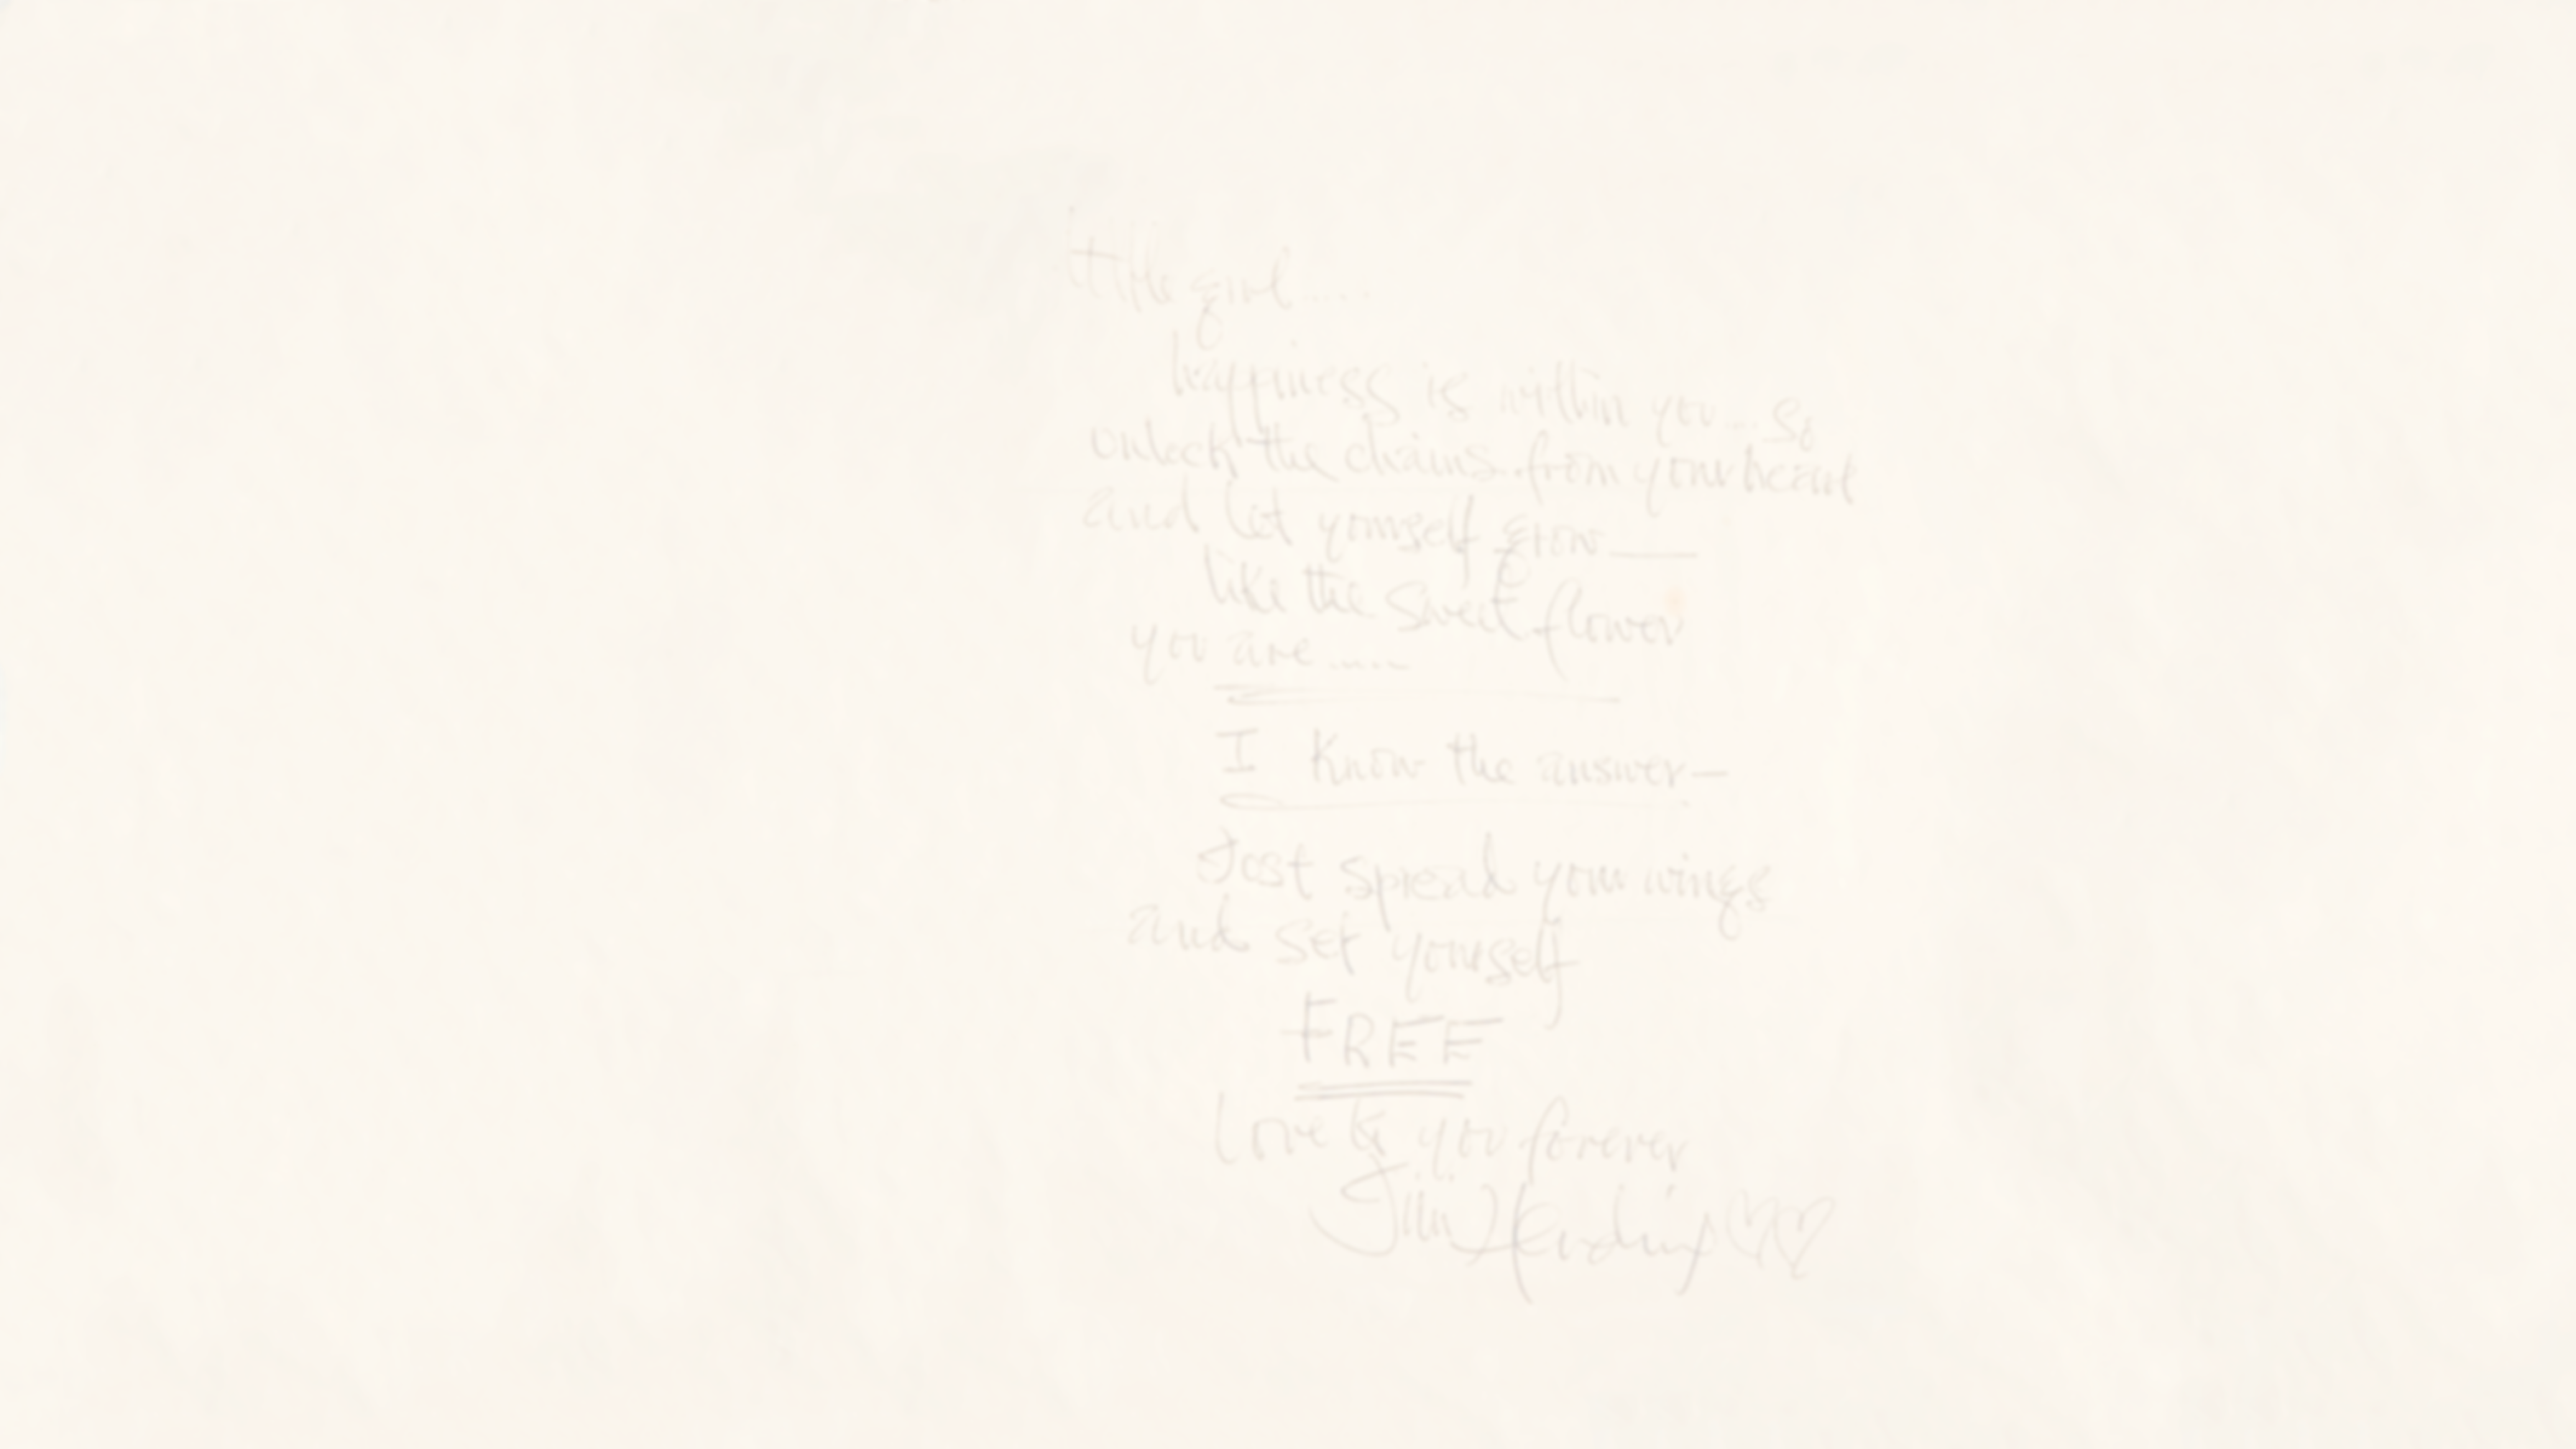 little girl.....
happiness is within you...so
unlock the chains from your heart
and let yourself grow——
like the sweet flower
you are.....
I know the answer—
Just spread your wings
and set yourself
FREE
Love to you forever
Jimi Hendrix ♡♡